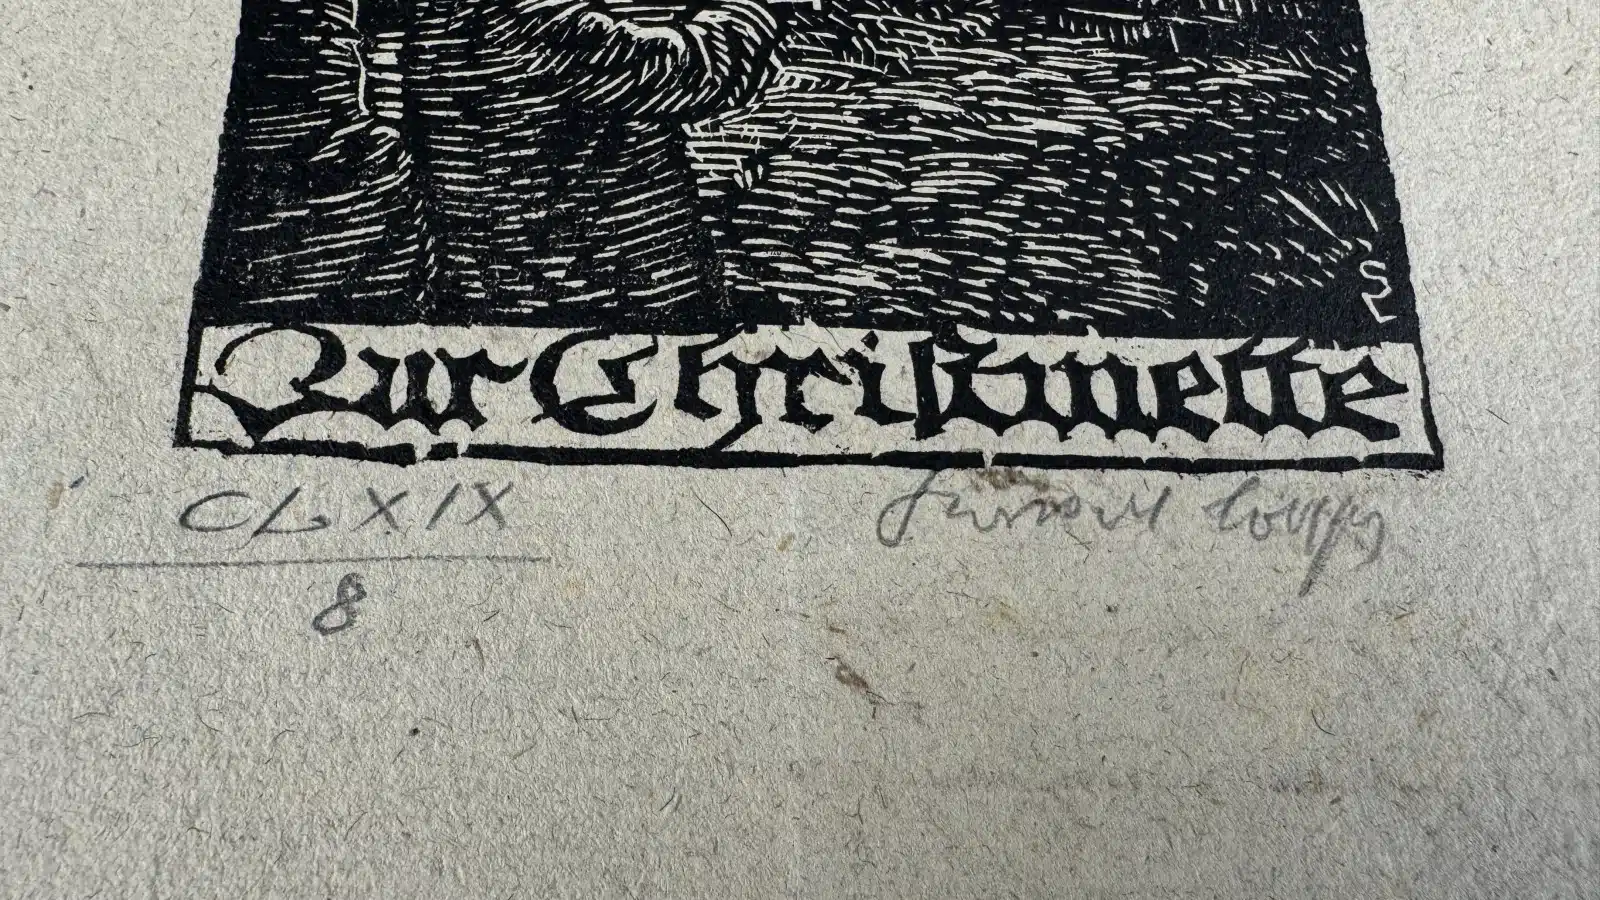 SL
Zur Christmette
CLXIX
8